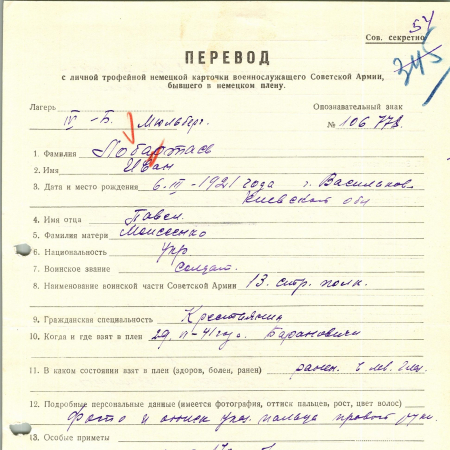 54
Сов. секретно
345
ПЕРЕВОД
с личной трофейной немецкой карточки военнослужащего Советской Армии,
бывшего в немецком плену.
Лагерь Опознавательный знак
IV -Б. Мюльберг. № 106 773.
1. Фамилия
2. Имя Иван
3. Дата и место рождения 6-III-1921 года г. Васильков
Киевской обл
4. Имя отца Павел
5. Фамилия матери Моисеенко
6. Национальность Укр
7. Воинское звание солдат.
8. Наименование воинской части Советской Армии 13. стр. полк.
9. Гражданская специальность Крестьянин
10. Когда и где взят в плен 29. 41 года. Барановичи
11. В каком состоянии взят в плен (здоров, болен, ранен) ранен.
12. Подробные персональные данные (имеется фотография, оттиск пальцев, рост, цвет волос)
Фото и оттиск указ. пальца правой руки.
13. Особые приметы